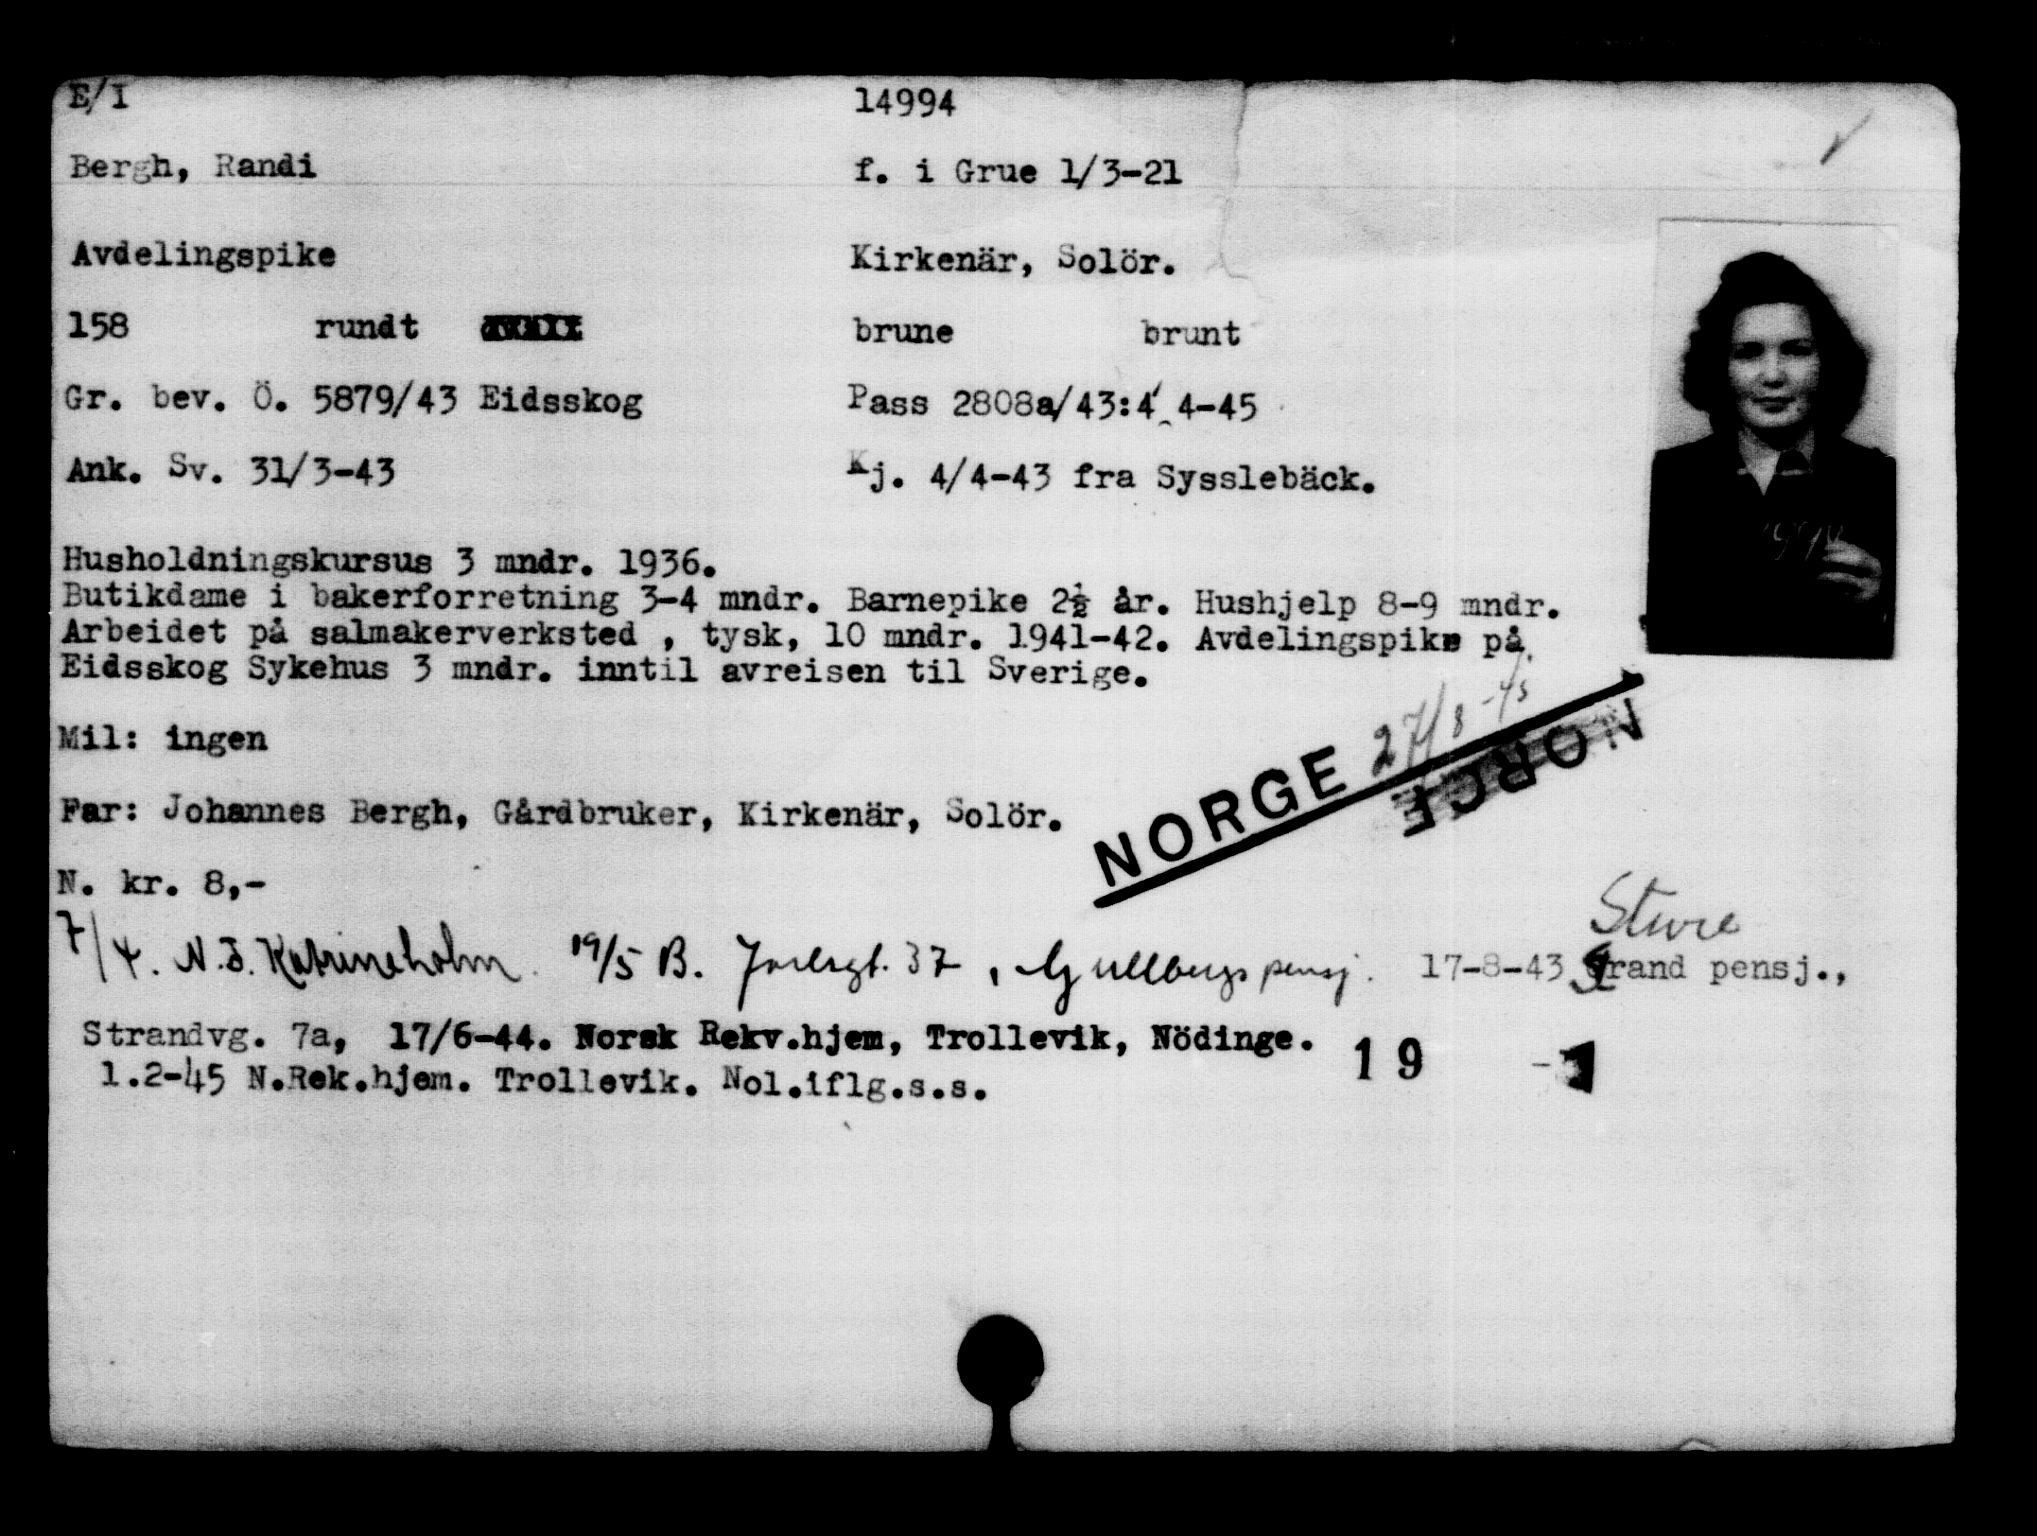 E/I 14994
Bergh, Randi f. i Grue 1/3-21
Avdelingspike Kirkenär, Solör.
158 rundt brune brunt
Gr. bev. Ö. 5879/43 Eidsskog Pass 2808a/43:4/4-45
Ank. Sv. 31/3-43 Kj. 4/4-43 fra Sysslebäck.
Husholdningskursus 3 mndr. 1936.
Butikdame i bakerforretning 3-4 mndr. Barnepike 2½ år. Hushjelp 8-9 mndr.
Arbeidet på salmakerverksted , tysk, 10 mndr. 1941-42. Avdelingspike på
Eidsskog Sykehus 3 mndr. inntil avreisen til Sverige.
Mil: ingen
NORGE 27/8-45
NORGE
Far: Johannes Bergh, Gårdbruker, Kirkenär, Solör.
N. kr. 8,-
Sture
7/4. N.J. Katrineholm. 19/5 B. 37, Gullbergs pensj. 17-8-43 Grand pensj.,
Strandvg. 7a, 17/6-44. Norsk Rekv.hjem, Trollevik, Nödinge.
19
1.2-45 N.Rek.hjem. Trollevik. Nol.iflg.s.s.